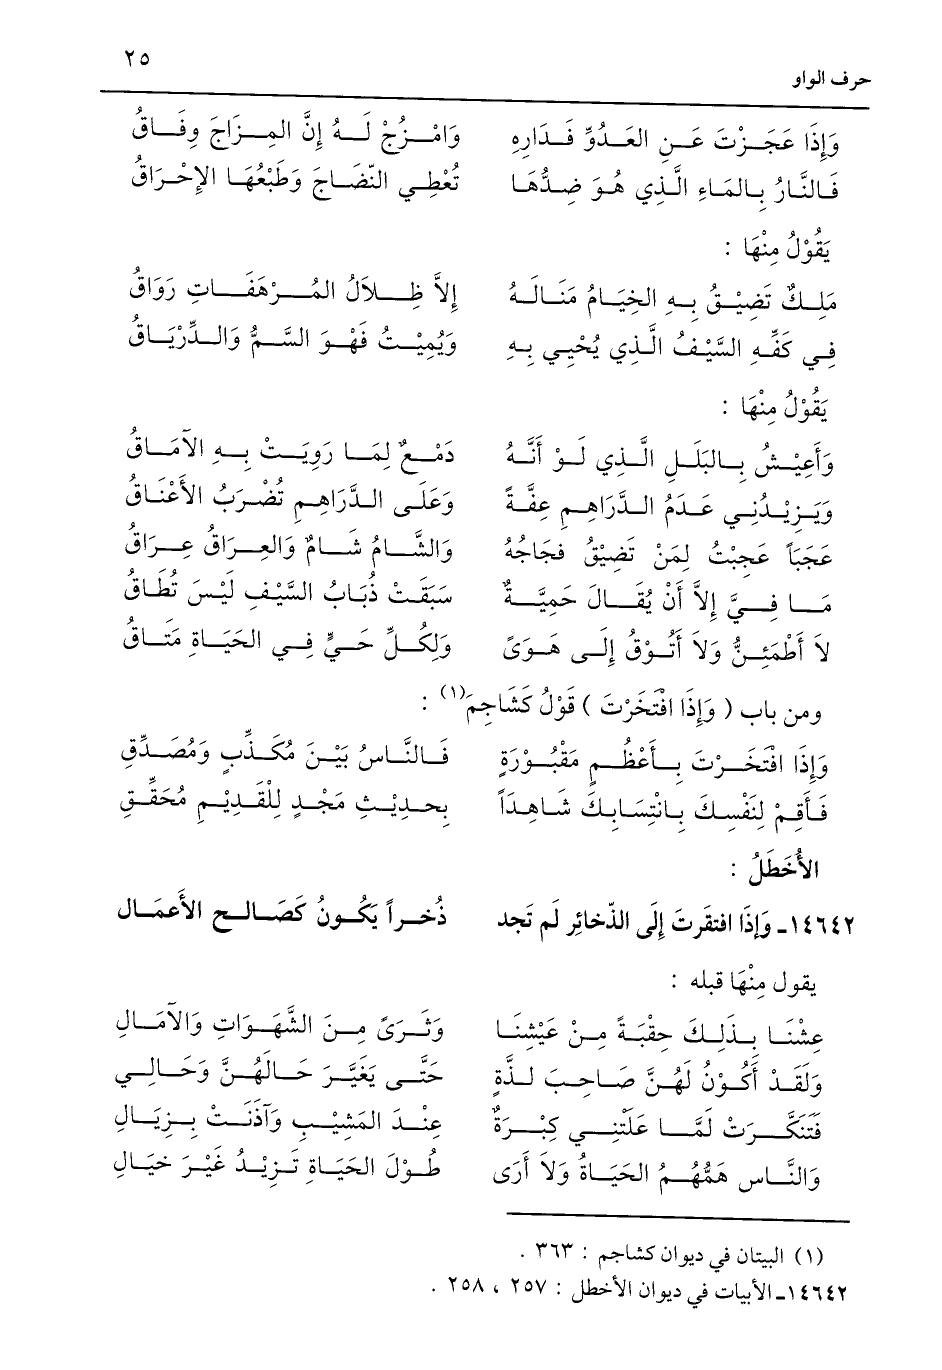 حرف الواو ٢٥
وَإِذَا عَجَزْتَ عَنِ العَدُوِّ فَدَارِهِ وَامْزُجْ لَهُ إِنَّ المِزَاجَ وِفَاقُ
فَالنَّارُ بِالمَاءِ الَّذِي هُوَ ضِدُّهَا تُعْطِي النّضَاجَ وَطَبْعُهَا الإِحْرَاقُ
يَقُوْلُ مِنْهَا :
مَلِكٌ تَضِيْقُ بِهِ الخِيَامُ مَنَالَهُ إِلاَّ ظِلاَلُ المُرْهَفَاتِ رَوَاقُ
فِي كَفِّهِ السَّيْفُ الَّذِي يُحْيِي بِهِ وَيُمِيْتُ فَهُوَ السَّمُّ وَالدِّرْيَاقُ
يَقُوْلُ مِنْهَا :
وَأَعِيْشُ بِالبَلَلِ الَّذِي لَوْ أَنَّهُ دَمْعٌ لِمَا رَوِيَتْ بِهِ الآمَاقُ
وَيَزِيْدُنِي عَدَمُ الدَّرَاهِمِ عِفَّةً وَعَلَى الدَّرَاهِمِ تُضْرَبُ الأَعْنَاقُ
عَجَبَاً عَجِبْتُ لِمَنْ تَضِيْقُ فجَاجُهُ وَالشَّامُ شَامٌ وَالعِرَاقُ عِرَاقُ
مَا فِيَّ إِلاَّ أَنْ يُقَالَ حَمِيَّةٌ سَبَقَتْ ذُبَابُ السَّيْفِ لَيْسَ تُطَاقُ
لاَ أَطْمَئِنُّ وَلاَ أَتُوْقُ إِلَى هَوَىً وَلِكُلِّ حَيٍّ فِي الحَيَاةِ مَتَاقُ
ومن باب ( وَإِذَا افْتَخَرْتَ ) قَوْلُ كَشَاجِمَ(١) :
وَإِذَا افْتَخَرْتَ بِأَعْظُمٍ مَقْبُوْرَةٍ فَالنَّاسُ بَيْنَ مُكَذِّبٍ وَمُصَدِّقِ
فَأَقِمْ لِنَفْسِكَ بِانْتِسَابِكَ شَاهِدَاً بِحَدِيْثِ مَجْدٍ لِلْقَدِيْمِ مُحَقِّقِ
الأَخْطَلُ :
١٤٦٤٢ـ وَإِذَا افتقرتَ إِلَى الذّخائرِ لَم تَجد ذُخراً يَكونُ كَصَالحِ الأَعمَال
يقول مِنْهَا قبله :
عِشْنَا بِذَلِكَ حِقْبَةً مِنْ عَيْشِنَا وَثَرَىً مِنَ الشَّهَوَاتِ وَالآمَالِ
وَلَقَدْ أَكُوْنُ لَهُنَّ صَاحِبَ لَذَّةٍ حَتَّى يَغَيَّرَ حَالَهُنَّ وَحَالِي
فَتَنَكَّرَتْ لَمَّا عَلَتْنِي كبْرَةٌ عِنْدَ المَشِيْبِ وَآذَنَتْ بِزِيَالِ
وَالنَّاس هَمُّهُمُ الحَيَاةُ وَلاَ أَرَى طُوْلَ الحَيَاةِ تَزِيْدُ غَيْرَ خَبَالِ
(١) البيتان في ديوان كشاجم : ٣٦٣ .
١٤٦٤٢ـ الأبيات في ديوان الأخطل : ٢٥٧ ، ٢٥٨ .